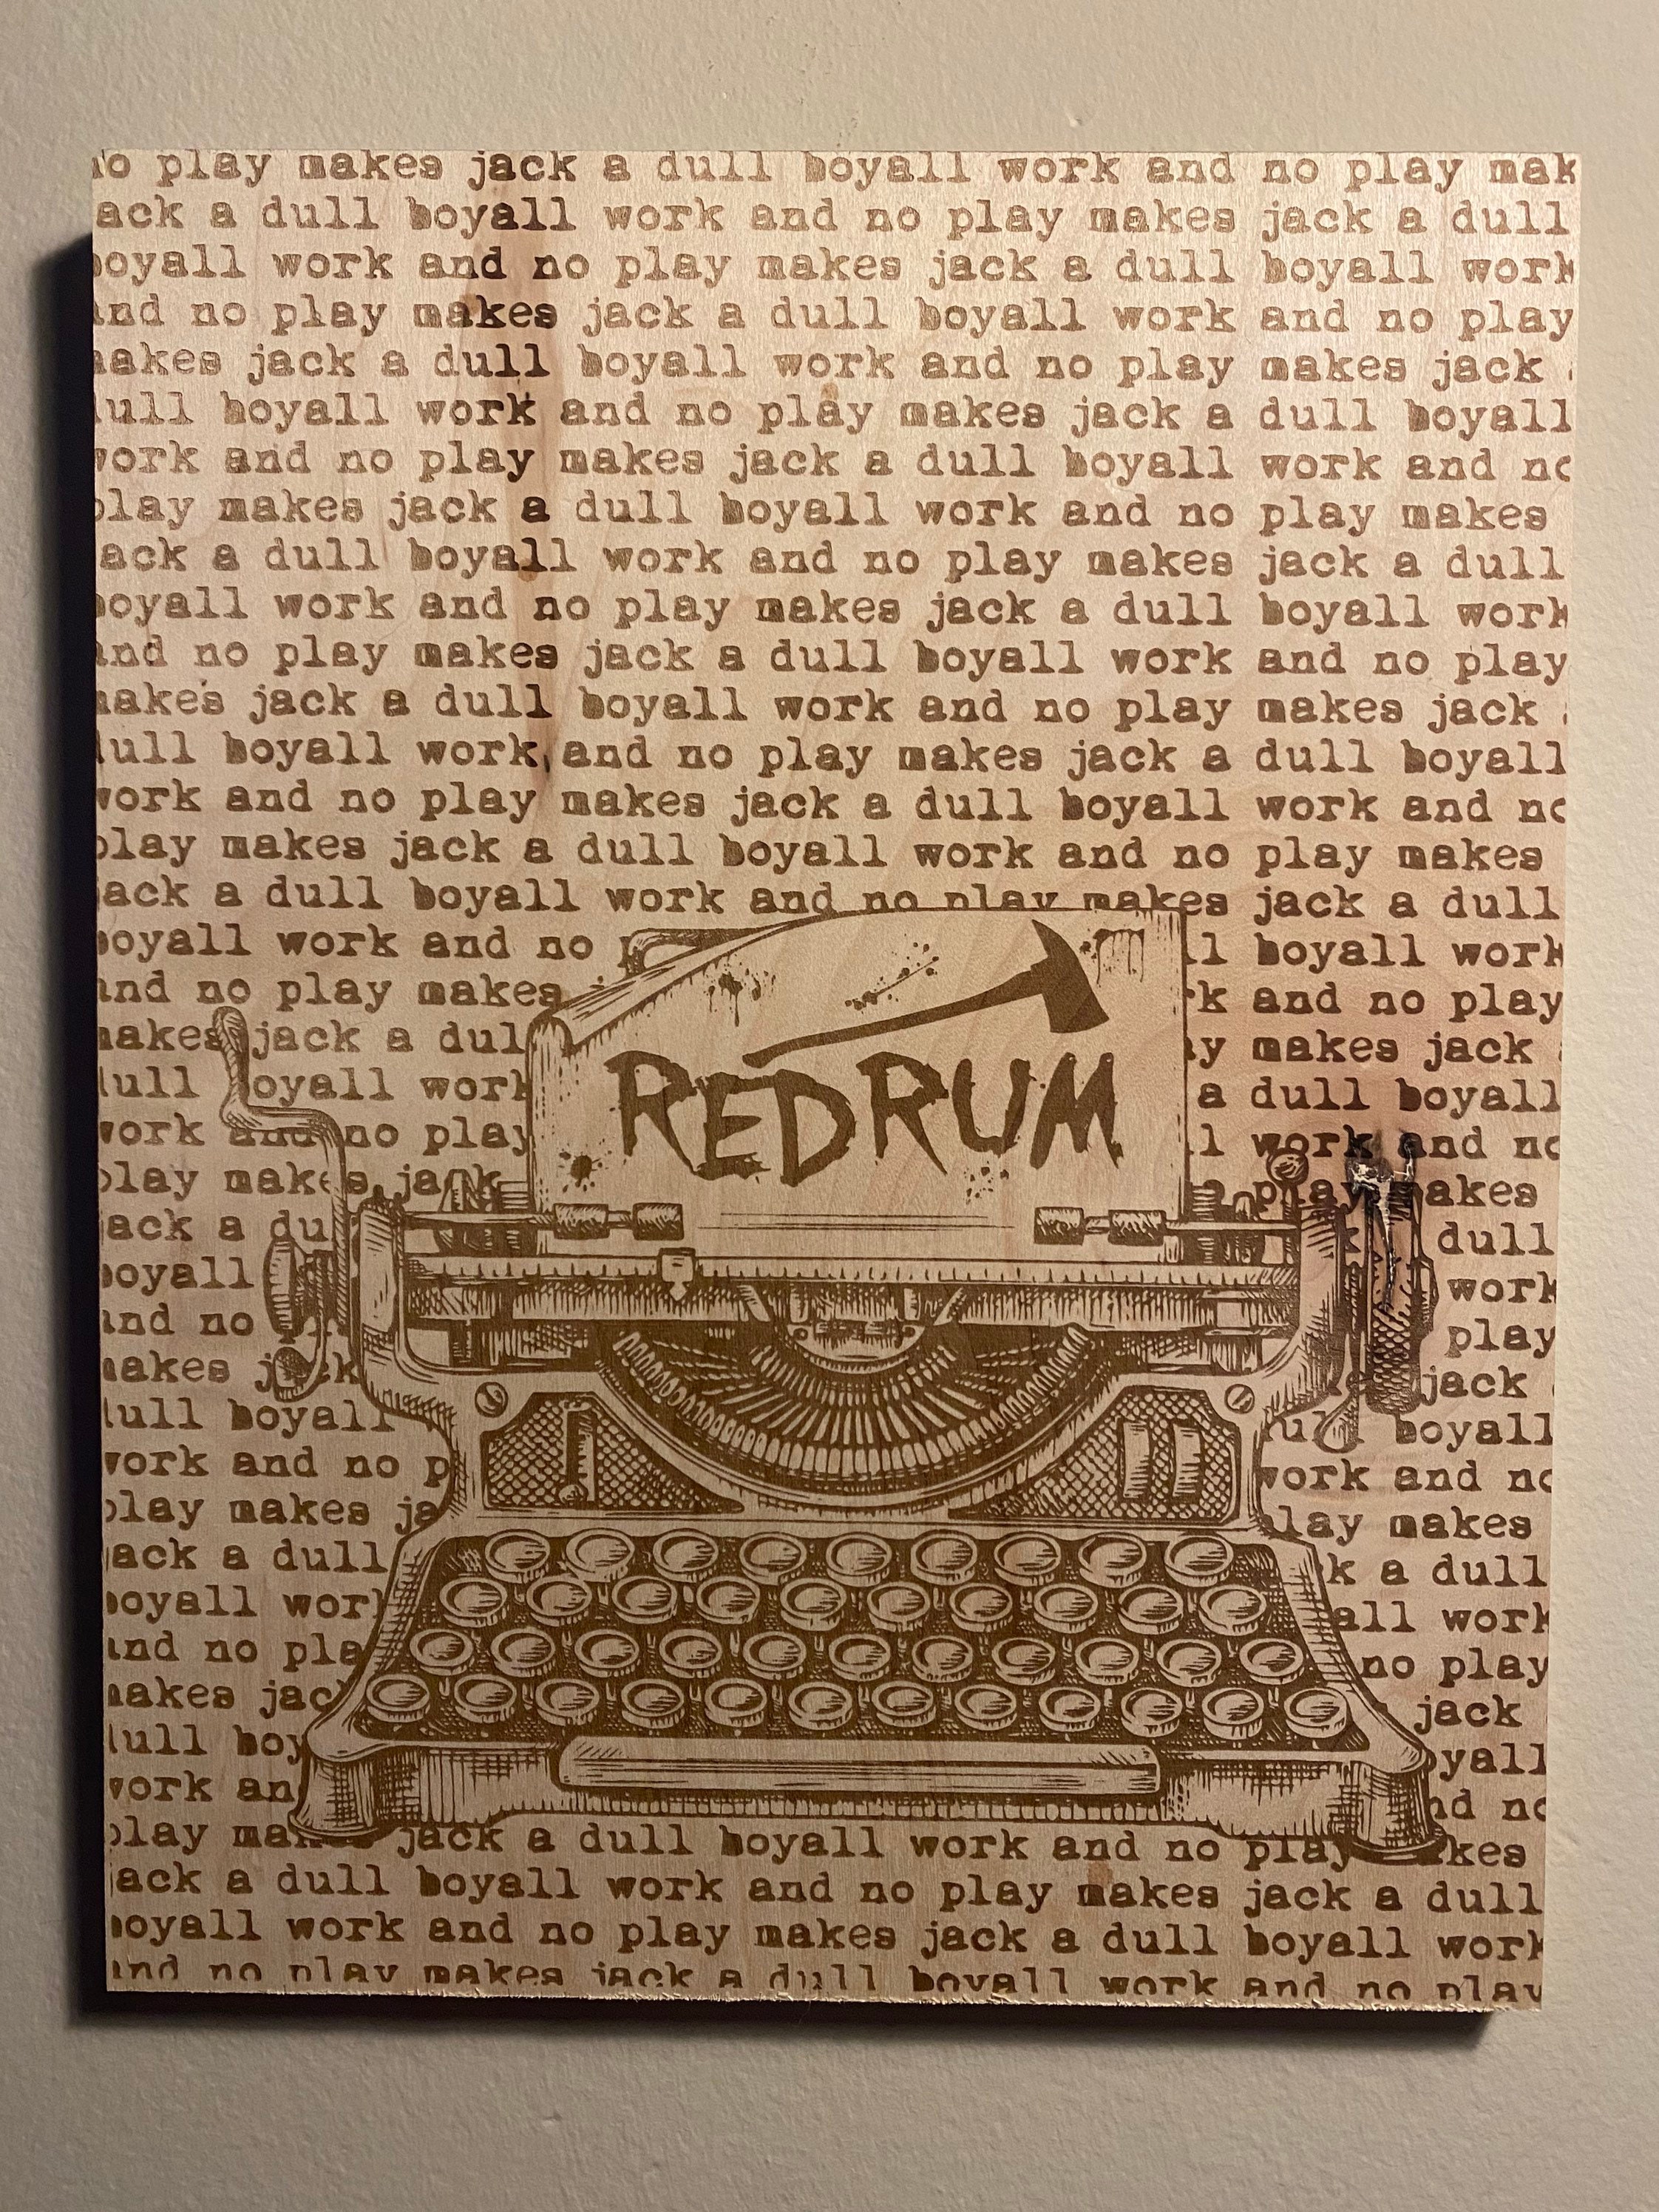 no play makes jack a dull boyall work and no play mak
ack a dull boyall work and no play makes jack a dull
boyall work and no play makes jack a dull boyall work
and no play makes jack a dull boyall work and no play
makes jack a dull boyall work and no play makes jack
dull boyall work and no play makes jack a dull boyall
work and no play makes jack a dull boyall work and no
play makes jack a dull boyall work and no play makes
jack a dull boyall work and no play makes jack a dull
boyall work and no play makes jack a dull boyall work
and no play makes jack a dull boyall work and no play
makes jack a dull boyall work and no play makes jack
dull boyall work and no play makes jack a dull boyall
work and no play makes jack a dull boyall work and no
play makes jack a dull boyall work and no play makes
jack a dull boyall work and no play makes jack a dull
boyall work and no p ll boyall work
and no play makes rk and no play
makes jack a dul ay makes jack
dull boyall work a dull boyall
REDRUM
work and no play ll work and no
play makes jack play makes
jack a du dull
boyall work
and no play
makes jack jack
dull boyall dull boyall
work and no p work and no
play makes ja play makes
jack a dull k a dull
boyall work all work
and no pla no play
makes jac jack
dull boy oyall
work an nd no
play mak jack a dull boyall work and no play akes
jack a dull boyall work and no play makes jack a dull
boyall work and no play makes jack a dull boyall work
and no play makes jack a dull boyall work and no play